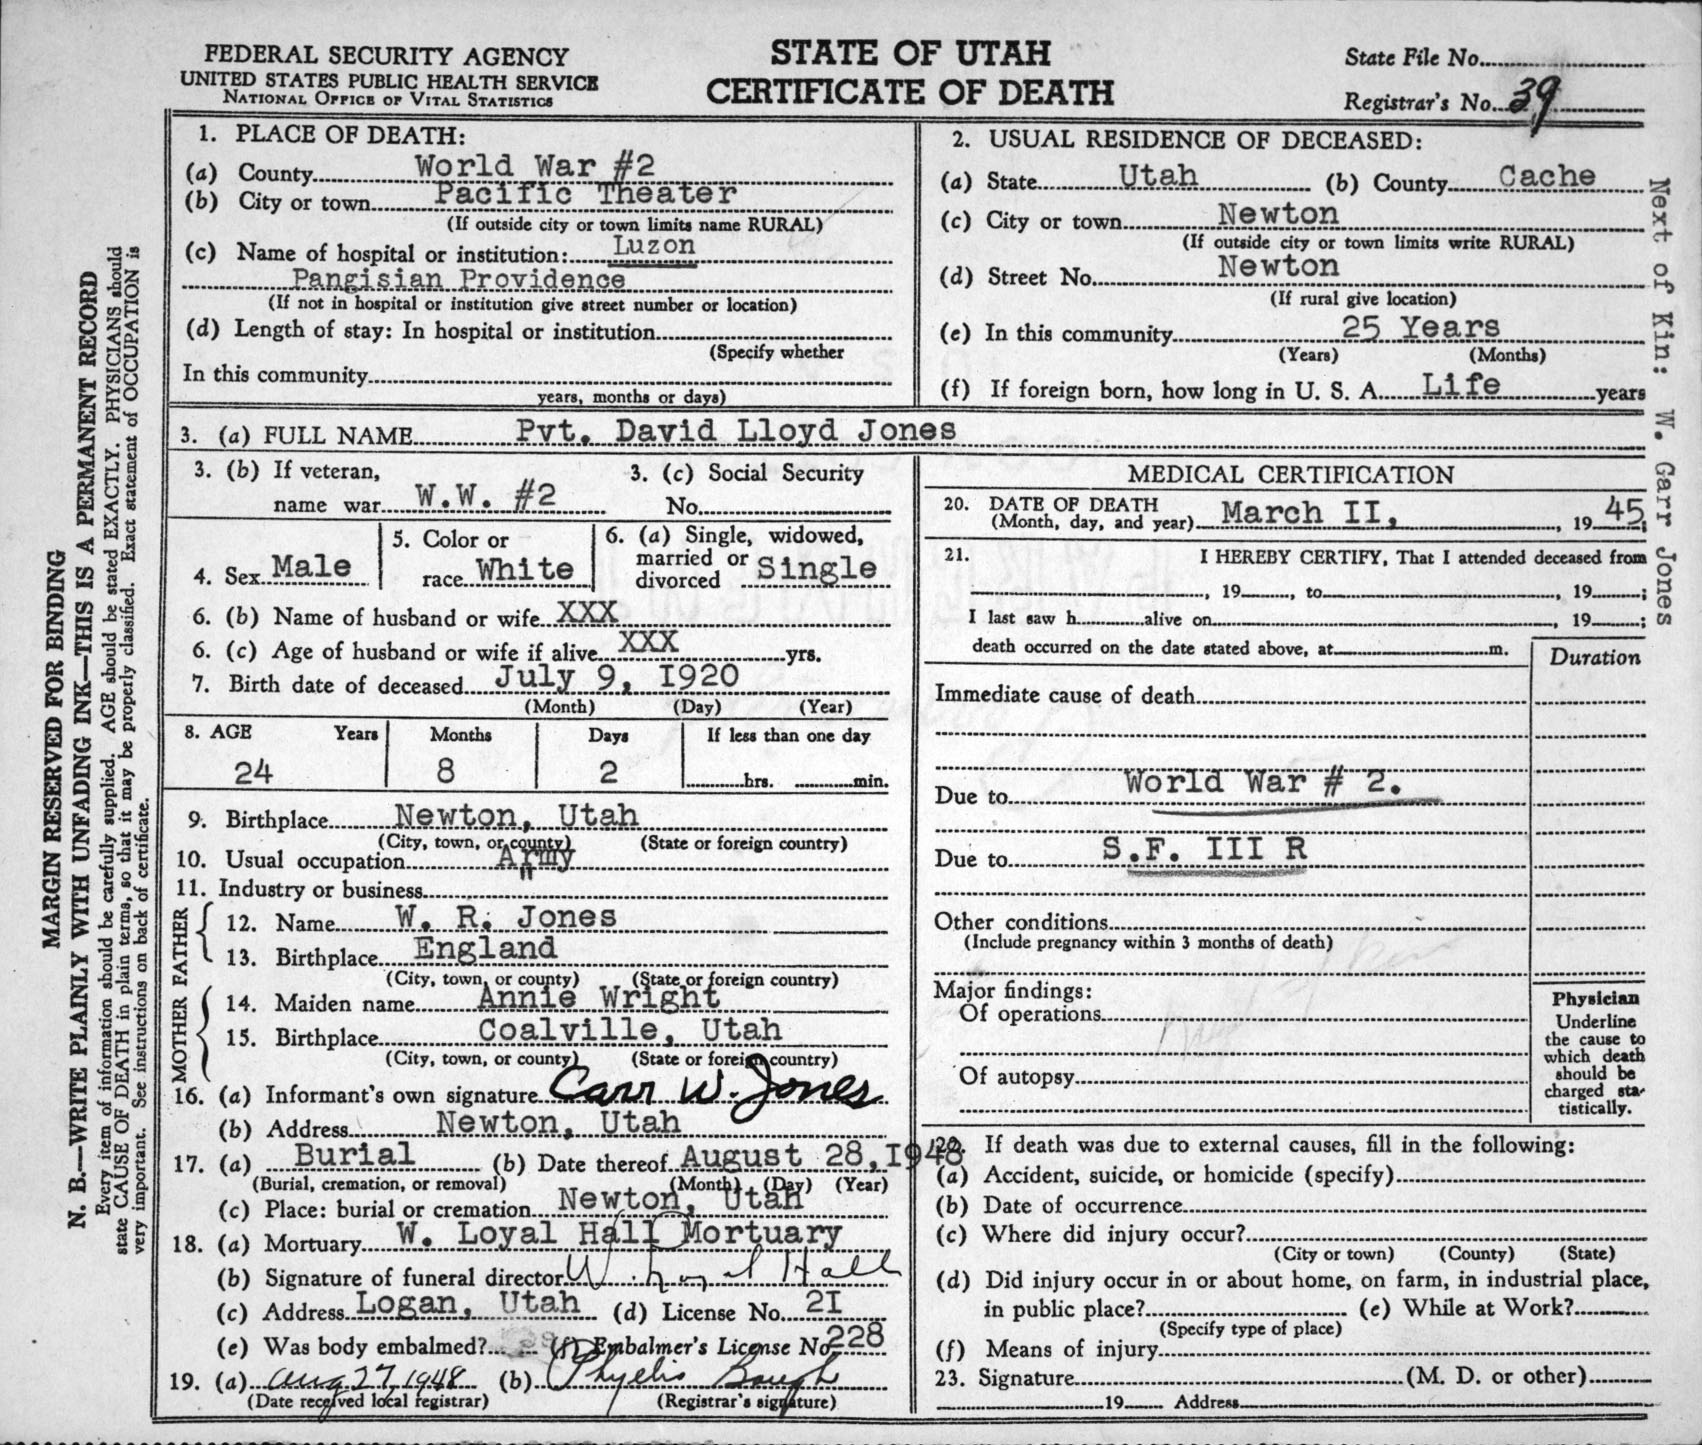 FEDERAL SECURITY AGENCY
UNITED STATES PUBLIC HEALTH SERVICE
NATIONAL OFFICE OF VITAL STATISTICS
STATE OF UTAH
CERTIFICATE OF DEATH
State File No.
Registrar's No. 39
MARGIN RESERVED FOR BINDING
N. B.—WRITE PLAINLY WITH UNFADING INK—THIS IS A PERMANENT RECORD
Every item of information should be carefully supplied. AGE should be stated EXACTLY. PHYSICIANS should
state CAUSE OF DEATH in plain terms, so that it may be properly classified. Exact statement of OCCUPATION is
very important. See instructions on back of certificate.
1. PLACE OF DEATH:
(a) County World War #2
(b) City or town Pacific Theater
(If outside city or town limits name RURAL)
(c) Name of hospital or institution: Luzon
Pangisian Providence
(If not in hospital or institution give street number or location)
(d) Length of stay: In hospital or institution
(Specify whether
In this community
years, months or days)
2. USUAL RESIDENCE OF DECEASED:
(a) State Utah (b) County Cache
(c) City or town Newton
(If outside city or town limits write RURAL)
(d) Street No. Newton
(If rural give location)
(e) In this community 25 Years
(Years) (Months)
(f) If foreign born, how long in U. S. A. Life years
Next of Kin: W. Garr Jones
3. (a) FULL NAME Pvt. David Lloyd Jones
3. (b) If veteran,
name war W.W. #2
3. (c) Social Security
No.
4. Sex Male
5. Color or
race White
6. (a) Single, widowed,
married or
divorced Single
6. (b) Name of husband or wife XXX
6. (c) Age of husband or wife if alive XXX yrs.
7. Birth date of deceased July 9, I920
(Month) (Day) (Year)
8. AGE Years Months Days If less than one day
24 8 2 hrs. min.
9. Birthplace Newton, Utah
(City, town, or county) (State or foreign country)
10. Usual occupation Army
11. Industry or business
FATHER
12. Name W. R. Jones
13. Birthplace England
(City, town, or county) (State or foreign country)
MOTHER
14. Maiden name Annie Wright
15. Birthplace Coalville, Utah
(City, town, or county) (State or foreign country)
16. (a) Informant's own signature Garr W. Jones
(b) Address Newton, Utah
17. (a) Burial (b) Date thereof August 28, I948
(Burial, cremation, or removal) (Month) (Day) (Year)
(c) Place: burial or cremation Newton, Utah
18. (a) Mortuary W. Loyal Hall Mortuary
(b) Signature of funeral director W. Loyal Hall
(c) Address Logan, Utah (d) License No. 2I
(e) Was body embalmed? (f) Embalmer's License No. 228
19. (a) Aug 27, 1948 (b) Phyllis Baugh
(Date received local registrar) (Registrar's signature)
MEDICAL CERTIFICATION
20. DATE OF DEATH
(Month, day, and year) March II, 1945
21. I HEREBY CERTIFY, That I attended deceased from
, 19 , to , 19 ;
I last saw h alive on , 19 ;
death occurred on the date stated above, at m.
Duration
Immediate cause of death
Due to World War # 2.
Due to S.F. III R
Other conditions
(Include pregnancy within 3 months of death)
Major findings:
Of operations
Of autopsy
Physician
Underline
the cause to
which death
should be
charged sta-
tistically.
22. If death was due to external causes, fill in the following:
(a) Accident, suicide, or homicide (specify)
(b) Date of occurrence
(c) Where did injury occur?
(City or town) (County) (State)
(d) Did injury occur in or about home, on farm, in industrial place,
in public place? (e) While at Work?
(Specify type of place)
(f) Means of injury
23. Signature (M. D. or other)
19 Address